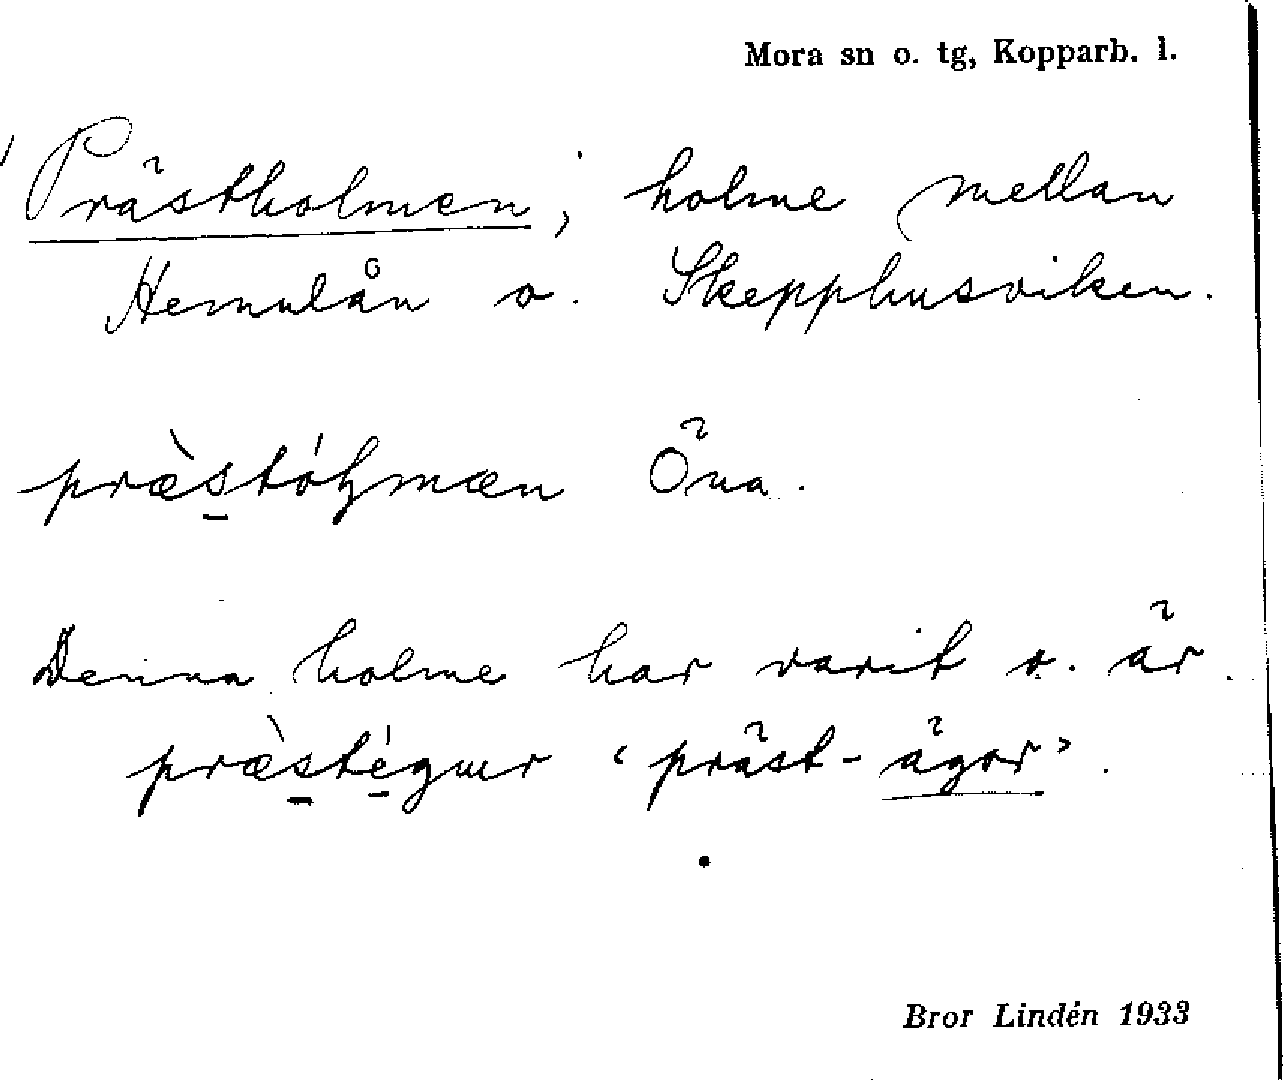 Mora sn o. tg, Kopparb. l.
Prästholmen, holme mellan
Hemulån o. Skepphusviken.
præ̀stóḷmæn Öna.
Denna holme har varit o. är
præ̀stégɯr ‘präst-ägor’.
Bror Lindén 1933